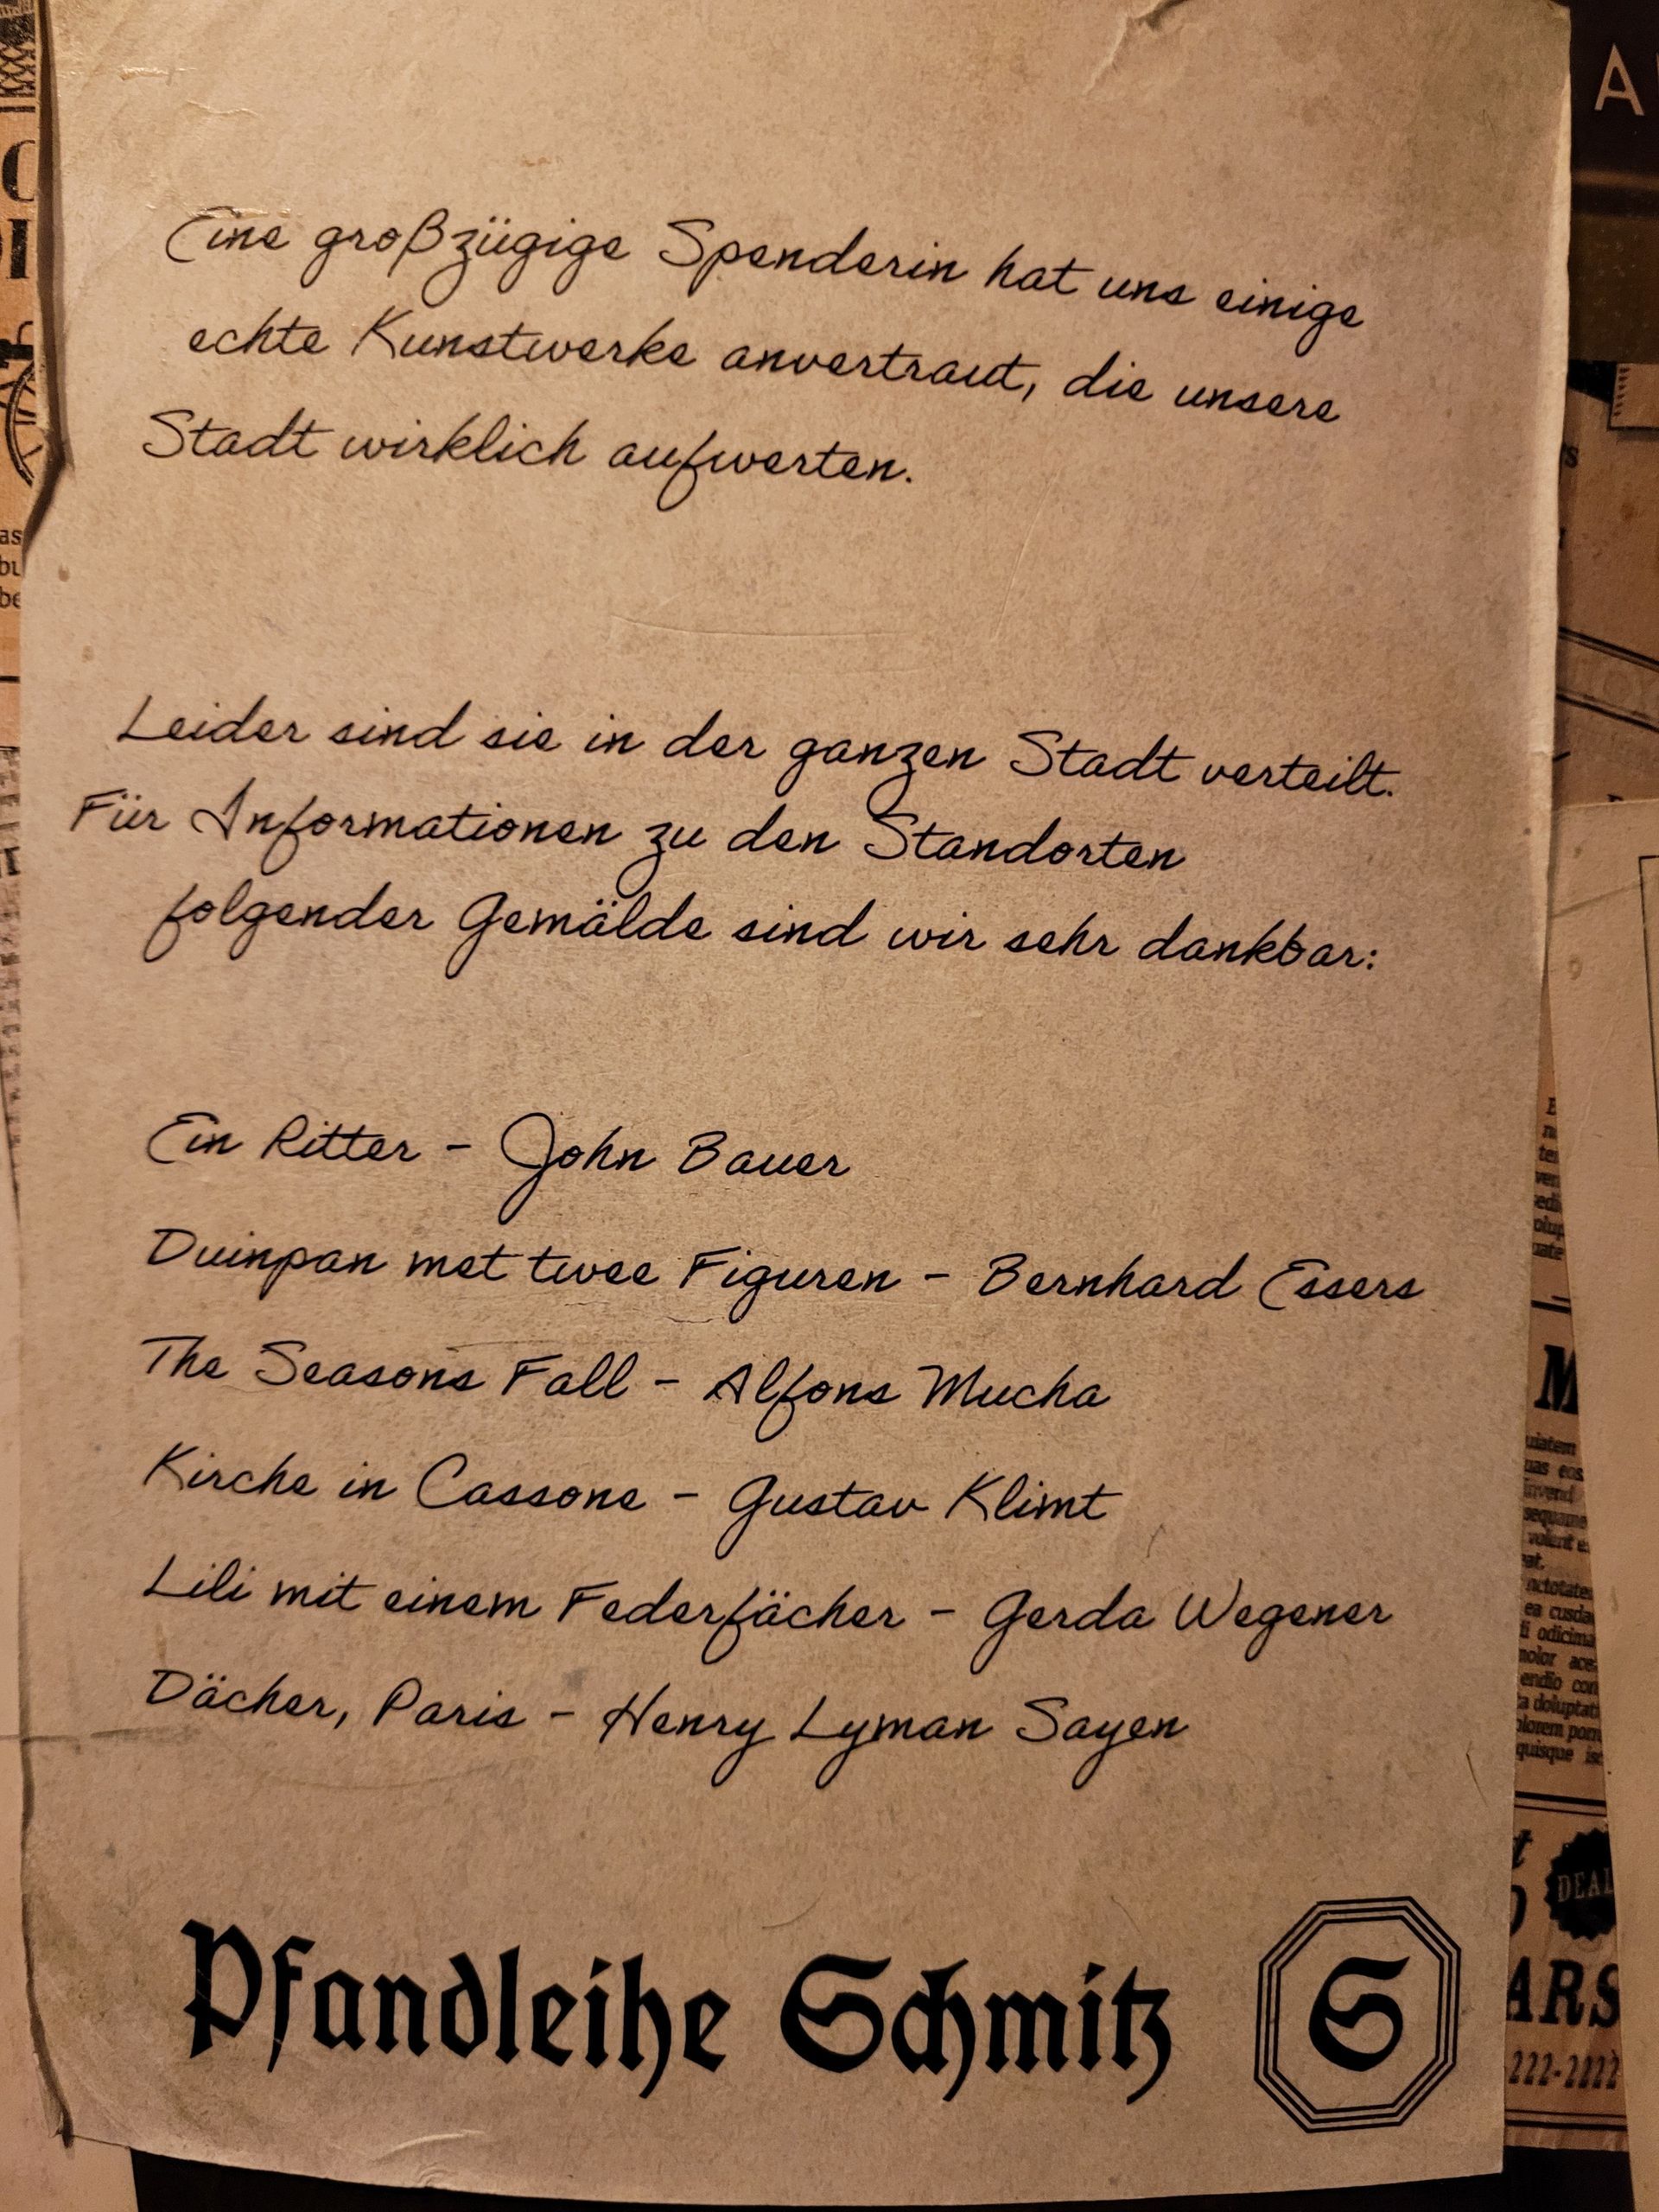 Eine großzügige Spenderin hat uns einige
echte Kunstwerke anvertraut, die unsere
Stadt wirklich aufwerten.
Leider sind sie in der ganzen Stadt verteilt.
Für Informationen zu den Standorten
folgender Gemälde sind wir sehr dankbar:
Ein Ritter - John Bauer
Duinpan met twee Figuren - Bernhard Essers
The Seasons Fall - Alfons Mucha
Kirche in Cassone - Gustav Klimt
Lili mit einem Federfächer - Gerda Wegener
Dächer, Paris - Henry Lyman Sayen
Pfandleihe Schmitz S
DEAL